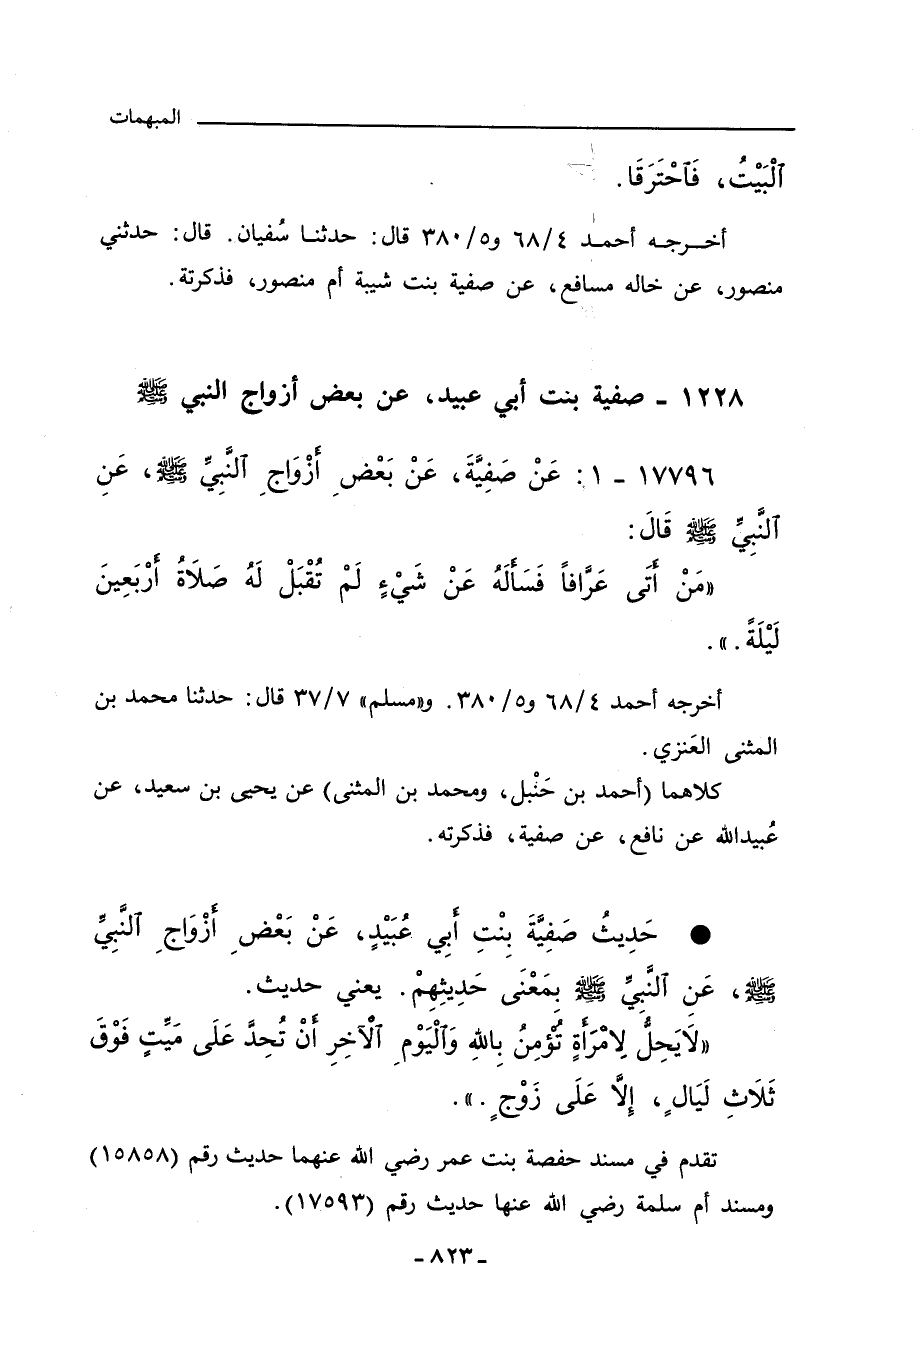 المبهمات
ٱلْبَيْتُ، فَٱحْتَرَقَا.
أخـرجـه أحمـد ٦٨/٤ و٣٨٠/٥ قال: حدثنـا سُفيان. قال: حدثني
منصور، عن خاله مسافع، عن صفية بنت شيبة أم منصور، فذكرتة.
١٢٢٨ - صفية بنت أبي عبيد، عن بعض أزواج النبي ﷺ
١٧٧٩٦ - ١: عَنْ صَفِيَّةَ، عَنْ بَعْضِ أَزْوَاجِ ٱلنَّبِيِّ ﷺ، عَنِ
ٱلنَّبِيِّ ﷺ قَالَ:
«مَنْ أَتَى عَرَّافاً فَسَأَلَهُ عَنْ شَيْءٍ لَمْ تُقْبَلْ لَهُ صَلَاةُ أَرْبَعِينَ
لَيْلَةً.».
أخرجه أحمد ٦٨/٤ و٣٨٠/٥. و«مسلم» ٣٧/٧ قال: حدثنا محمد بن
المثنى العَنزي.
كلاهما (أحمد بن حَنْبل، ومحمد بن المثنى) عن يحيى بن سعيد، عن
عُبيدالله عن نافع، عن صفية، فذكرته.
● حَدِيثُ صَفِيَّةَ بِنْتِ أَبِي عُبَيْدٍ، عَنْ بَعْضِ أَزْوَاجِ ٱلنَّبِيِّ
ﷺ، عَنِ ٱلنَّبِيِّ ﷺ بِمَعْنَى حَدِيثِهِمْ. يعني حديث.
«لَايَحِلُّ لِامْرَأَةٍ تُؤْمِنُ بِاللهِ وَٱلْيَوْمِ ٱلْآخِرِ أَنْ تُحِدَّ عَلَى مَيِّتٍ فَوْقَ
ثَلَاثِ لَيَالٍ، إِلَّا عَلَى زَوْجٍ.».
تقدم في مسند حفصة بنت عمر رضي الله عنهما حديث رقم (١٥٨٥٨)
ومسند أم سلمة رضي الله عنها حديث رقم (١٧٥٩٣).
- ٨٢٣ -